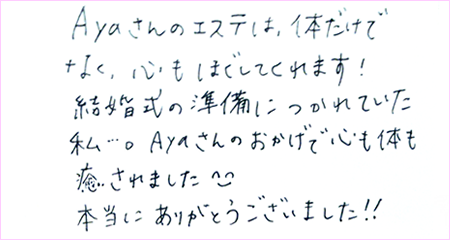 Ayaさんのエステは、体だけで
なく、心もほぐしてくれます!
結婚式の準備につかれていた
私…。Ayaさんのおかげで心も体も
癒されました
本当にありがとうございました!!